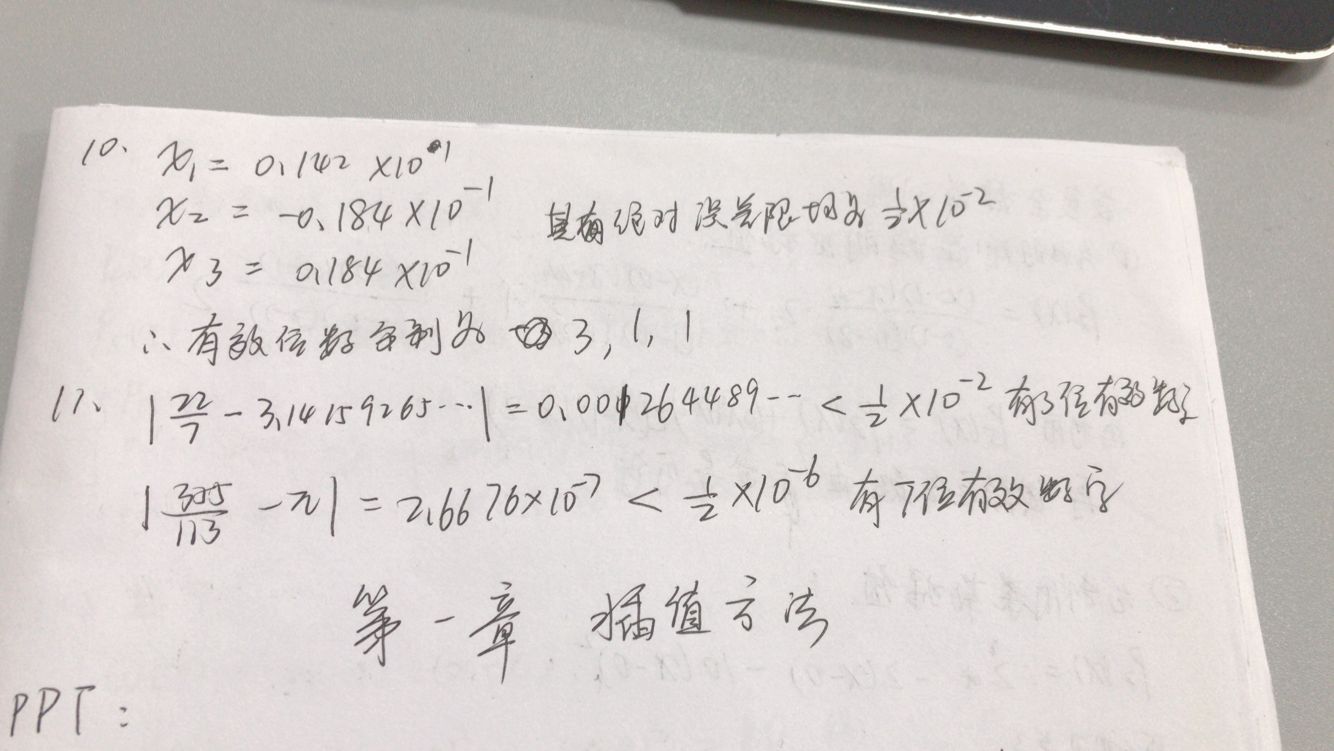 10、 x₁ = 0.142 × 10¹
x₂ = -0.184 × 10⁻¹ 具有绝对误差限均为 ½ × 10⁻²
x₃ = 0.184 × 10⁻¹
∴ 有效位数分别为 3, 1, 1
11、 |22/7 - 3.14159265…| = 0.001264489… < ½ × 10⁻² 有3位有效数字
|355/113 - π| = 2.6676 × 10⁻⁷ < ½ × 10⁻⁶ 有7位有效数字
第一章 插值方法
PPT: